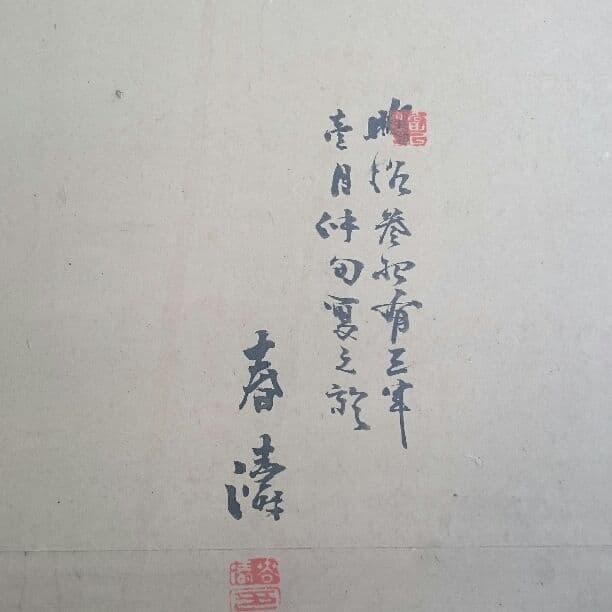 昭和参拾有三年
壹月仲旬寫之於
春濤